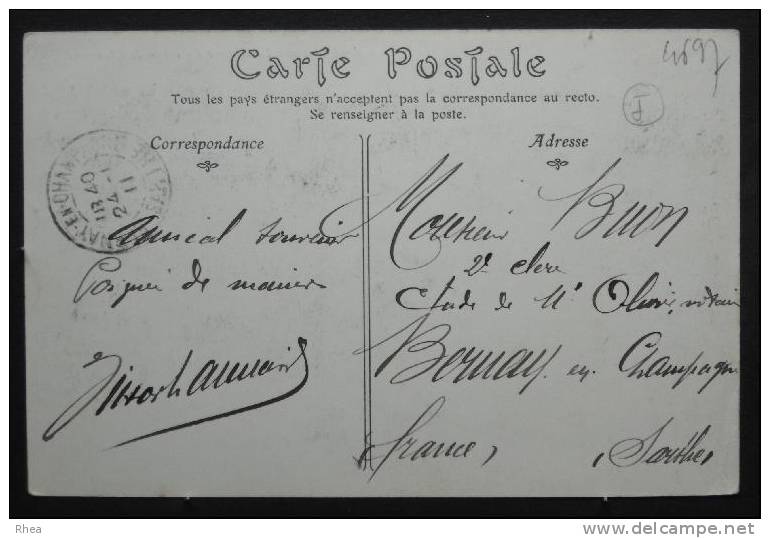 Carte Postale
Tous les pays étrangers n'acceptent pas la correspondance au recto.
Se renseigner à la poste.
4697
J
Correspondance
Adresse
18 40
24 - 1
11
Amical souvenir
Poignée de mains
Monsieur Buon
2e clerc
Etude de Me Olivier, notaire
Bernay en Champagne
(Sarthe)
France
Rhea
delcampe.net